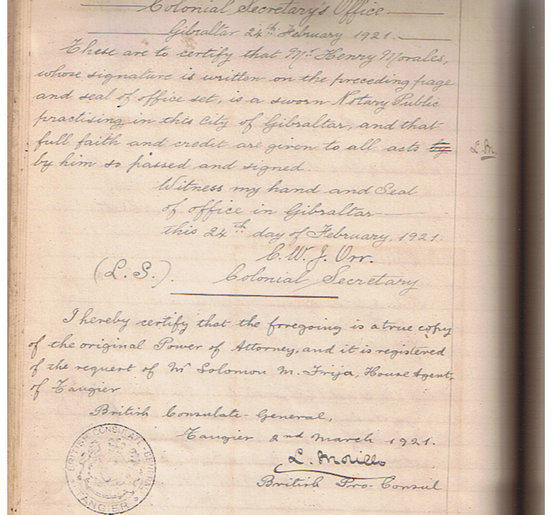 Colonial Secretary's Office
Gibraltar 24th February 1921.
These are to certify that Mr. Henry Morales,
whose signature is written on the preceding page
and seal of office set, is a sworn Notary Public
practising in this City of Gibraltar, and that
full faith and credit are given to all acts
by him so passed and signed.
Witness my hand and Seal
of office in Gibraltar
this 24th day of February, 1921.
C. W. J. Orr.
(L. S.). Colonial Secretary
L. M.
I hereby certify that the foregoing is a true copy
of the original Power of Attorney, and it is registered
of the request of Mr Solomon M. House Agent,
of Tangier
British Consulate-General,
Tangier 2nd March 1921.
L. Morillo
British Pro-Consul
BRITISH CONSULATE-GENERAL
TANGIER